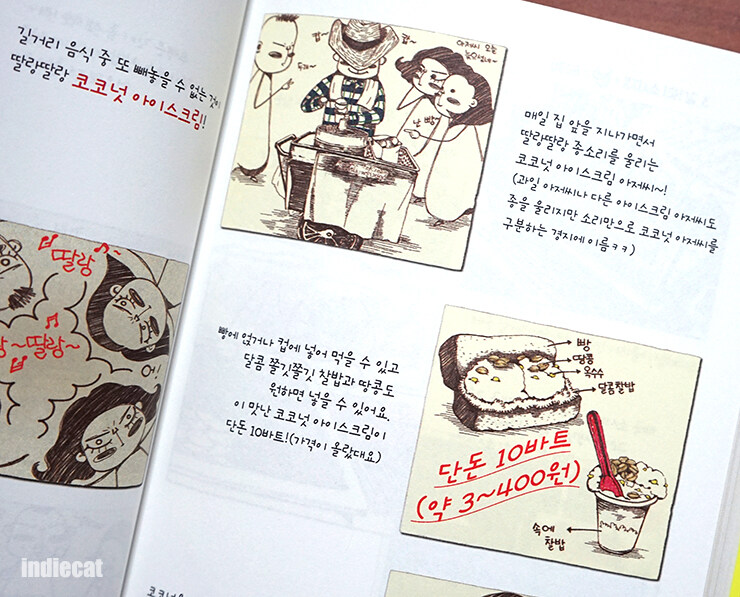 길거리 음식 중 또 빼놓을 수 없는 것이
딸랑딸랑 코코넛 아이스크림!
딸랑
~딸랑~
어!
아저씨 오늘
늦으셨네~
난 빵!
매일 집 앞을 지나가면서
딸랑딸랑 종소리를 울리는
코코넛 아이스크림 아저씨~!
(과일 아저씨나 다른 아이스크림 아저씨도
종을 울리지만 소리만으로 코코넛 아저씨를
구분하는 경지에 이름ㅋㅋ)
빵에 얹거나 컵에 넣어 먹을 수 있고
달콤 쫄깃쫄깃 찰밥과 땅콩도
원하면 넣을 수 있어요.
이 맛난 코코넛 아이스크림이
단돈 10바트!(가격이 올랐대요)
빵
땅콩
옥수수
달콤찰밥
단돈 10바트
(약 3~400원)
속에
찰밥
indiecat